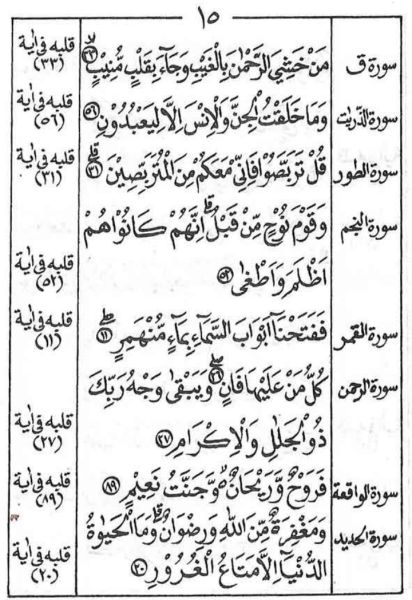 ١٥
سورة ق مَنْ خَشِيَ الرَّحْمٰنَ بِالْغَيْبِ وَجَآءَ بِقَلْبٍ مُّنِيْبٍ ٣٣ قلبه فى اية (٣٣)
سورة الذّريت وَمَا خَلَقْتُ الْجِنَّ وَالْاِنْسَ اِلَّا لِيَعْبُدُوْنِ ٥٦ قلبه فى اية (٥٦)
سورة الطور قُلْ تَرَبَّصُوْا فَاِنِّيْ مَعَكُمْ مِّنَ الْمُتَرَبِّصِيْنَ ٣١ قلبه فى اية (٣١)
سورة النجم وَقَوْمَ نُوْحٍ مِّنْ قَبْلُ اِنَّهُمْ كَانُوْا هُمْ
اَظْلَمَ وَاَطْغٰى ٥٢ قلبه فى اية (٥٢)
سورة القمر فَفَتَحْنَآ اَبْوَابَ السَّمَآءِ بِمَآءٍ مُّنْهَمِرٍ ١١ قلبه فى اية (١١)
سورة الرحمن كُلُّ مَنْ عَلَيْهَا فَانٍ ٢٦ وَيَبْقٰى وَجْهُ رَبِّكَ
ذُو الْجَلٰلِ وَالْاِكْرَامِ ٢٧ قلبه فى اية (٢٧)
سورة الواقعة فَرَوْحٌ وَّرَيْحَانٌ وَّجَنَّتُ نَعِيْمٍ ٨٩ قلبه فى اية (٨٩)
سورة الحديد وَمَغْفِرَةٌ مِّنَ اللهِ وَرِضْوَانٌ وَمَا الْحَيٰوةُ
الدُّنْيَآ اِلَّا مَتَاعُ الْغُرُوْرِ ٢٠ قلبه فى اية (٢٠)